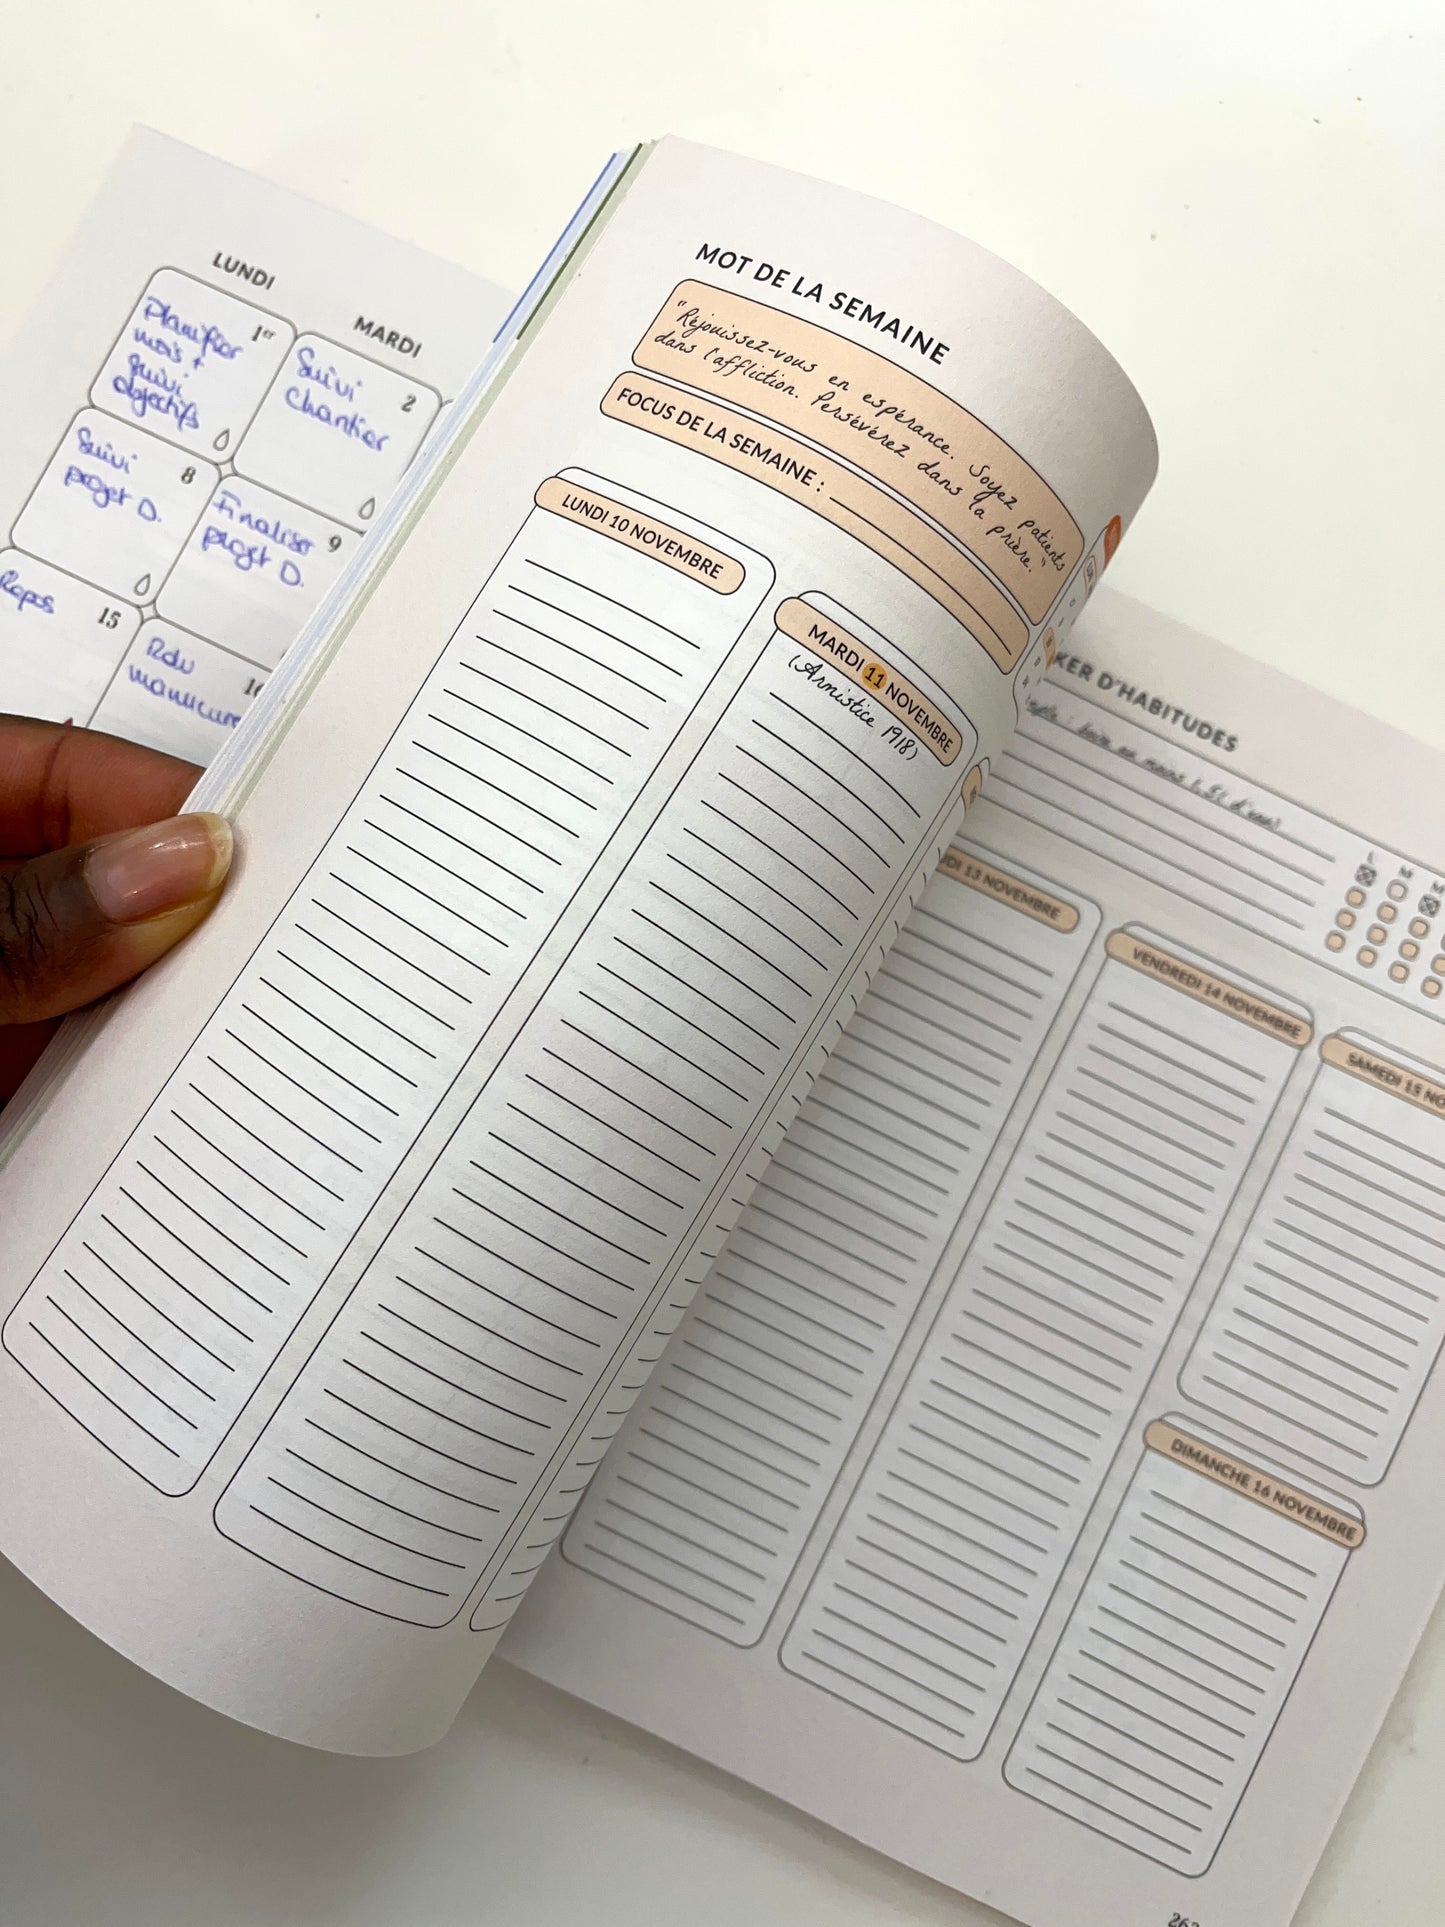 LUNDI
MARDI
1er
Planifier
mois +
suivi
objectifs
2
Suivi
chantier
8
Suivi
projet D.
9
Finaliser
projet D.
15
Repos
Rdv
manucure
MOT DE LA SEMAINE
"Réjouissez-vous en espérance. Soyez patients
dans l'affliction. Persévérez dans la prière."
FOCUS DE LA SEMAINE :
LUNDI 10 NOVEMBRE
MARDI 11 NOVEMBRE
(Armistice 1918)
KER D'HABITUDES
boire au moins 1,5l d'eau
L M M
DI 13 NOVEMBRE
VENDREDI 14 NOVEMBRE
SAMEDI 15 NO
DIMANCHE 16 NOVEMBRE